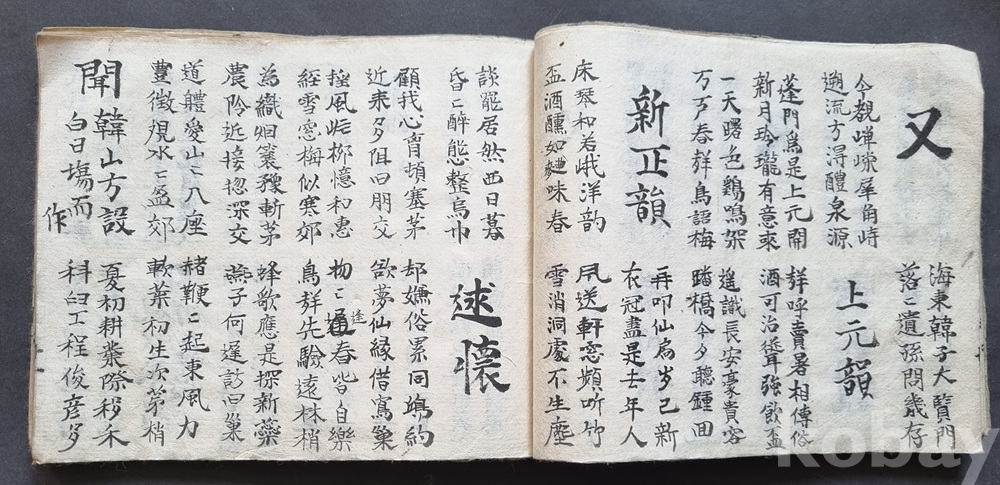 又
海東韓子大賢門
落〻遺孫問幾存
今覩嶂嶸犀角峙
遡流方淂醴泉源
上元韻
蓬門爲是上元開
新月玲瓏有意來
群呼賣暑相傳俗
酒可治聾強飮盃
一天曙色鷄鳴架
万戸春群鳥認梅
遙識長安豪貴客
踏橋今夕聽鍾回
新正韻
再叩仙扃岁已新
衣冠盡是去年人
床琴和若峨洋韵
盃酒醺如麯味春
凮送軒窓頻听竹
雪消洞處不生塵
談罷居然西日暮
昏〻醉態整烏巾
述懷
顧我心盲頓塞茅
近來多阻旧朋交
却嫌俗累同塢約
欲夢仙緣借窩巢
風吹柳憶和惠
經雪窓梅似寒郊
物〻通春皆自樂
鳥群先驗遠林梢
爲織烟簑豫斬茅
農談近接揔深交
蜂歌應是探新蘂
燕子何遲訪旧巢
道軆愛山〻入座
豊徵規水〻盈郊
赭鞭〻起東風力
軟葉初生次第梢
聞韓山方設
白日塲而
作
夏初耕業際移禾
科臼工程俊彦多